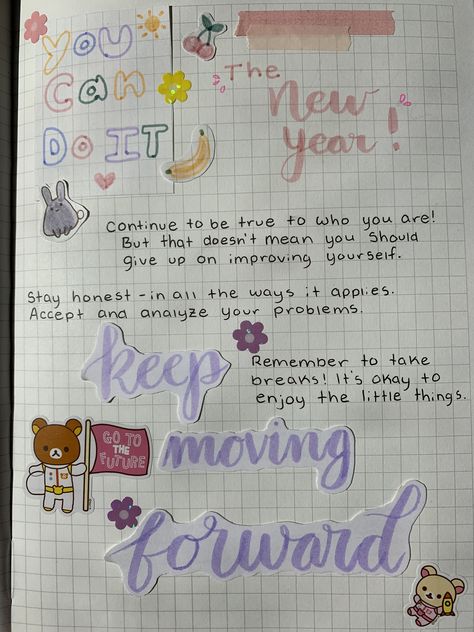 You
Can
Do IT
The
New
Year!
Continue to be true to who you are!
But that doesn't mean you should
give up on improving yourself.
Stay honest - in all the ways it applies.
Accept and analyze your problems.
keep
Remember to take
breaks! It's okay to
enjoy the little things.
GO TO
THE
FUTURE
moving
forward